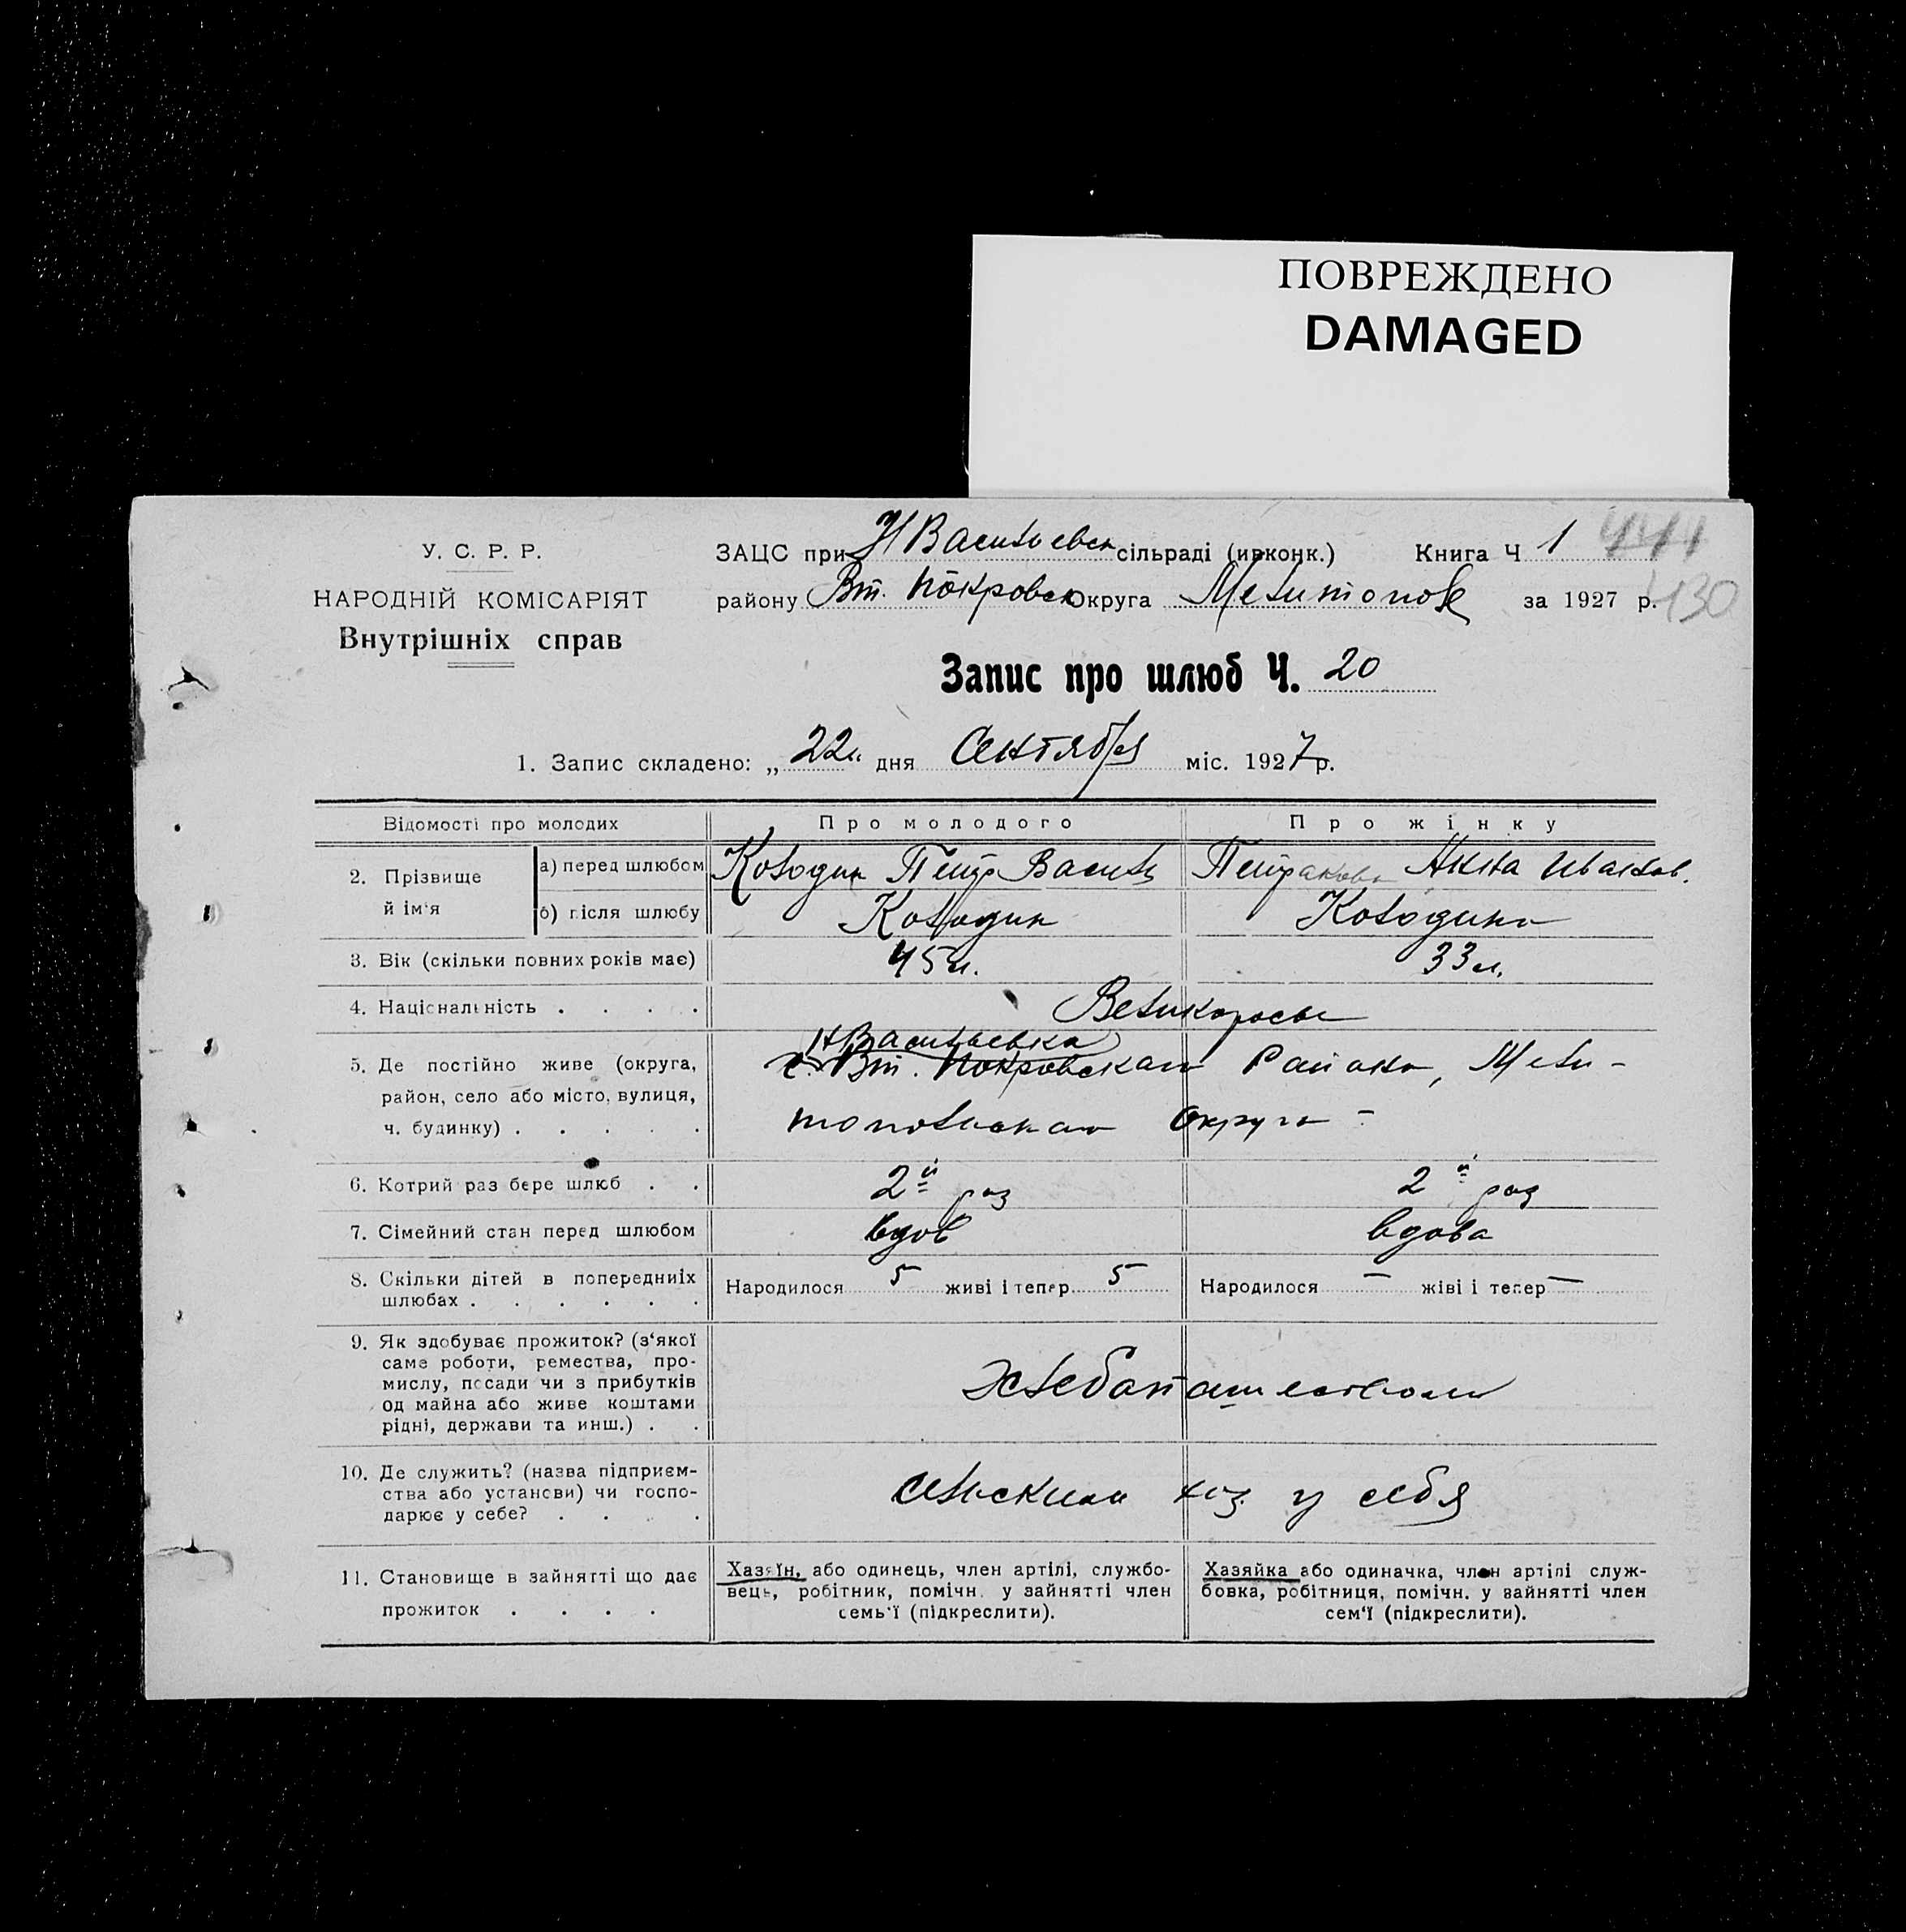 ПОВРЕЖДЕНО
DAMAGED
У. С. Р. Р.
НАРОДНІЙ КОМІСАРІЯТ
Внутрішніх справ
ЗАЦС при Н Васильевск сільраді (ивконк.) Книга Ч 1 444
району Вт. Покровск Округа Мелитополь за 1927 р. 430
Запис про шлюб Ч. 20
1. Запис складено: „22“ дня Сентября міс. 1927 р.
Відомості про молодих Про молодого Про жінку
2. Прізвище й ім'я
а) перед шлюбом Колодин Петр Василь Петракова Анна Иванов.
б) після шлюбу Колодин Колодина
3. Вік (скільки повних років має) 45 л. 33 л.
4. Національність . . . . Великороссы
Н Васильевка
5. Де постійно живе (округа, с. Вт. Покровскаго Района, Мели-
район, село або місто, вулиця,
ч. будинку) . . . . . топольскаго Округа -
6. Котрий раз бере шлюб . . 2й раз 2й раз
7. Сімейний стан перед шлюбом вдов вдова
8. Скільки дітей в попередниіх Народилося 5 живі і тепер 5 Народилося — жіві і тепер —
шлюбах . . . . . .
9. Як здобуває прожиток? (з‘якої
саме роботи, ремества, про-
мислу, посади чи з прибутків Хлебопашеством
од майна або живе коштами
рідні, держави та инш.) . .
10. Де служить? (назва підприєм-
ства або установи) чи госпо- сельским хоз. у себя
дарює у себе? . . . .
11. Становище в зайнятті що дає
прожиток . . . .
Хазяїн, або одинець, член артілі, службо-
вець, робітник, помічн. у зайнятті член
семь'ї (підкреслити).
Хазяйка або одиначка, член артілі служ-
бовка, робітниця, помічн. у зайнятті член
сем‘ї (підкреслити).